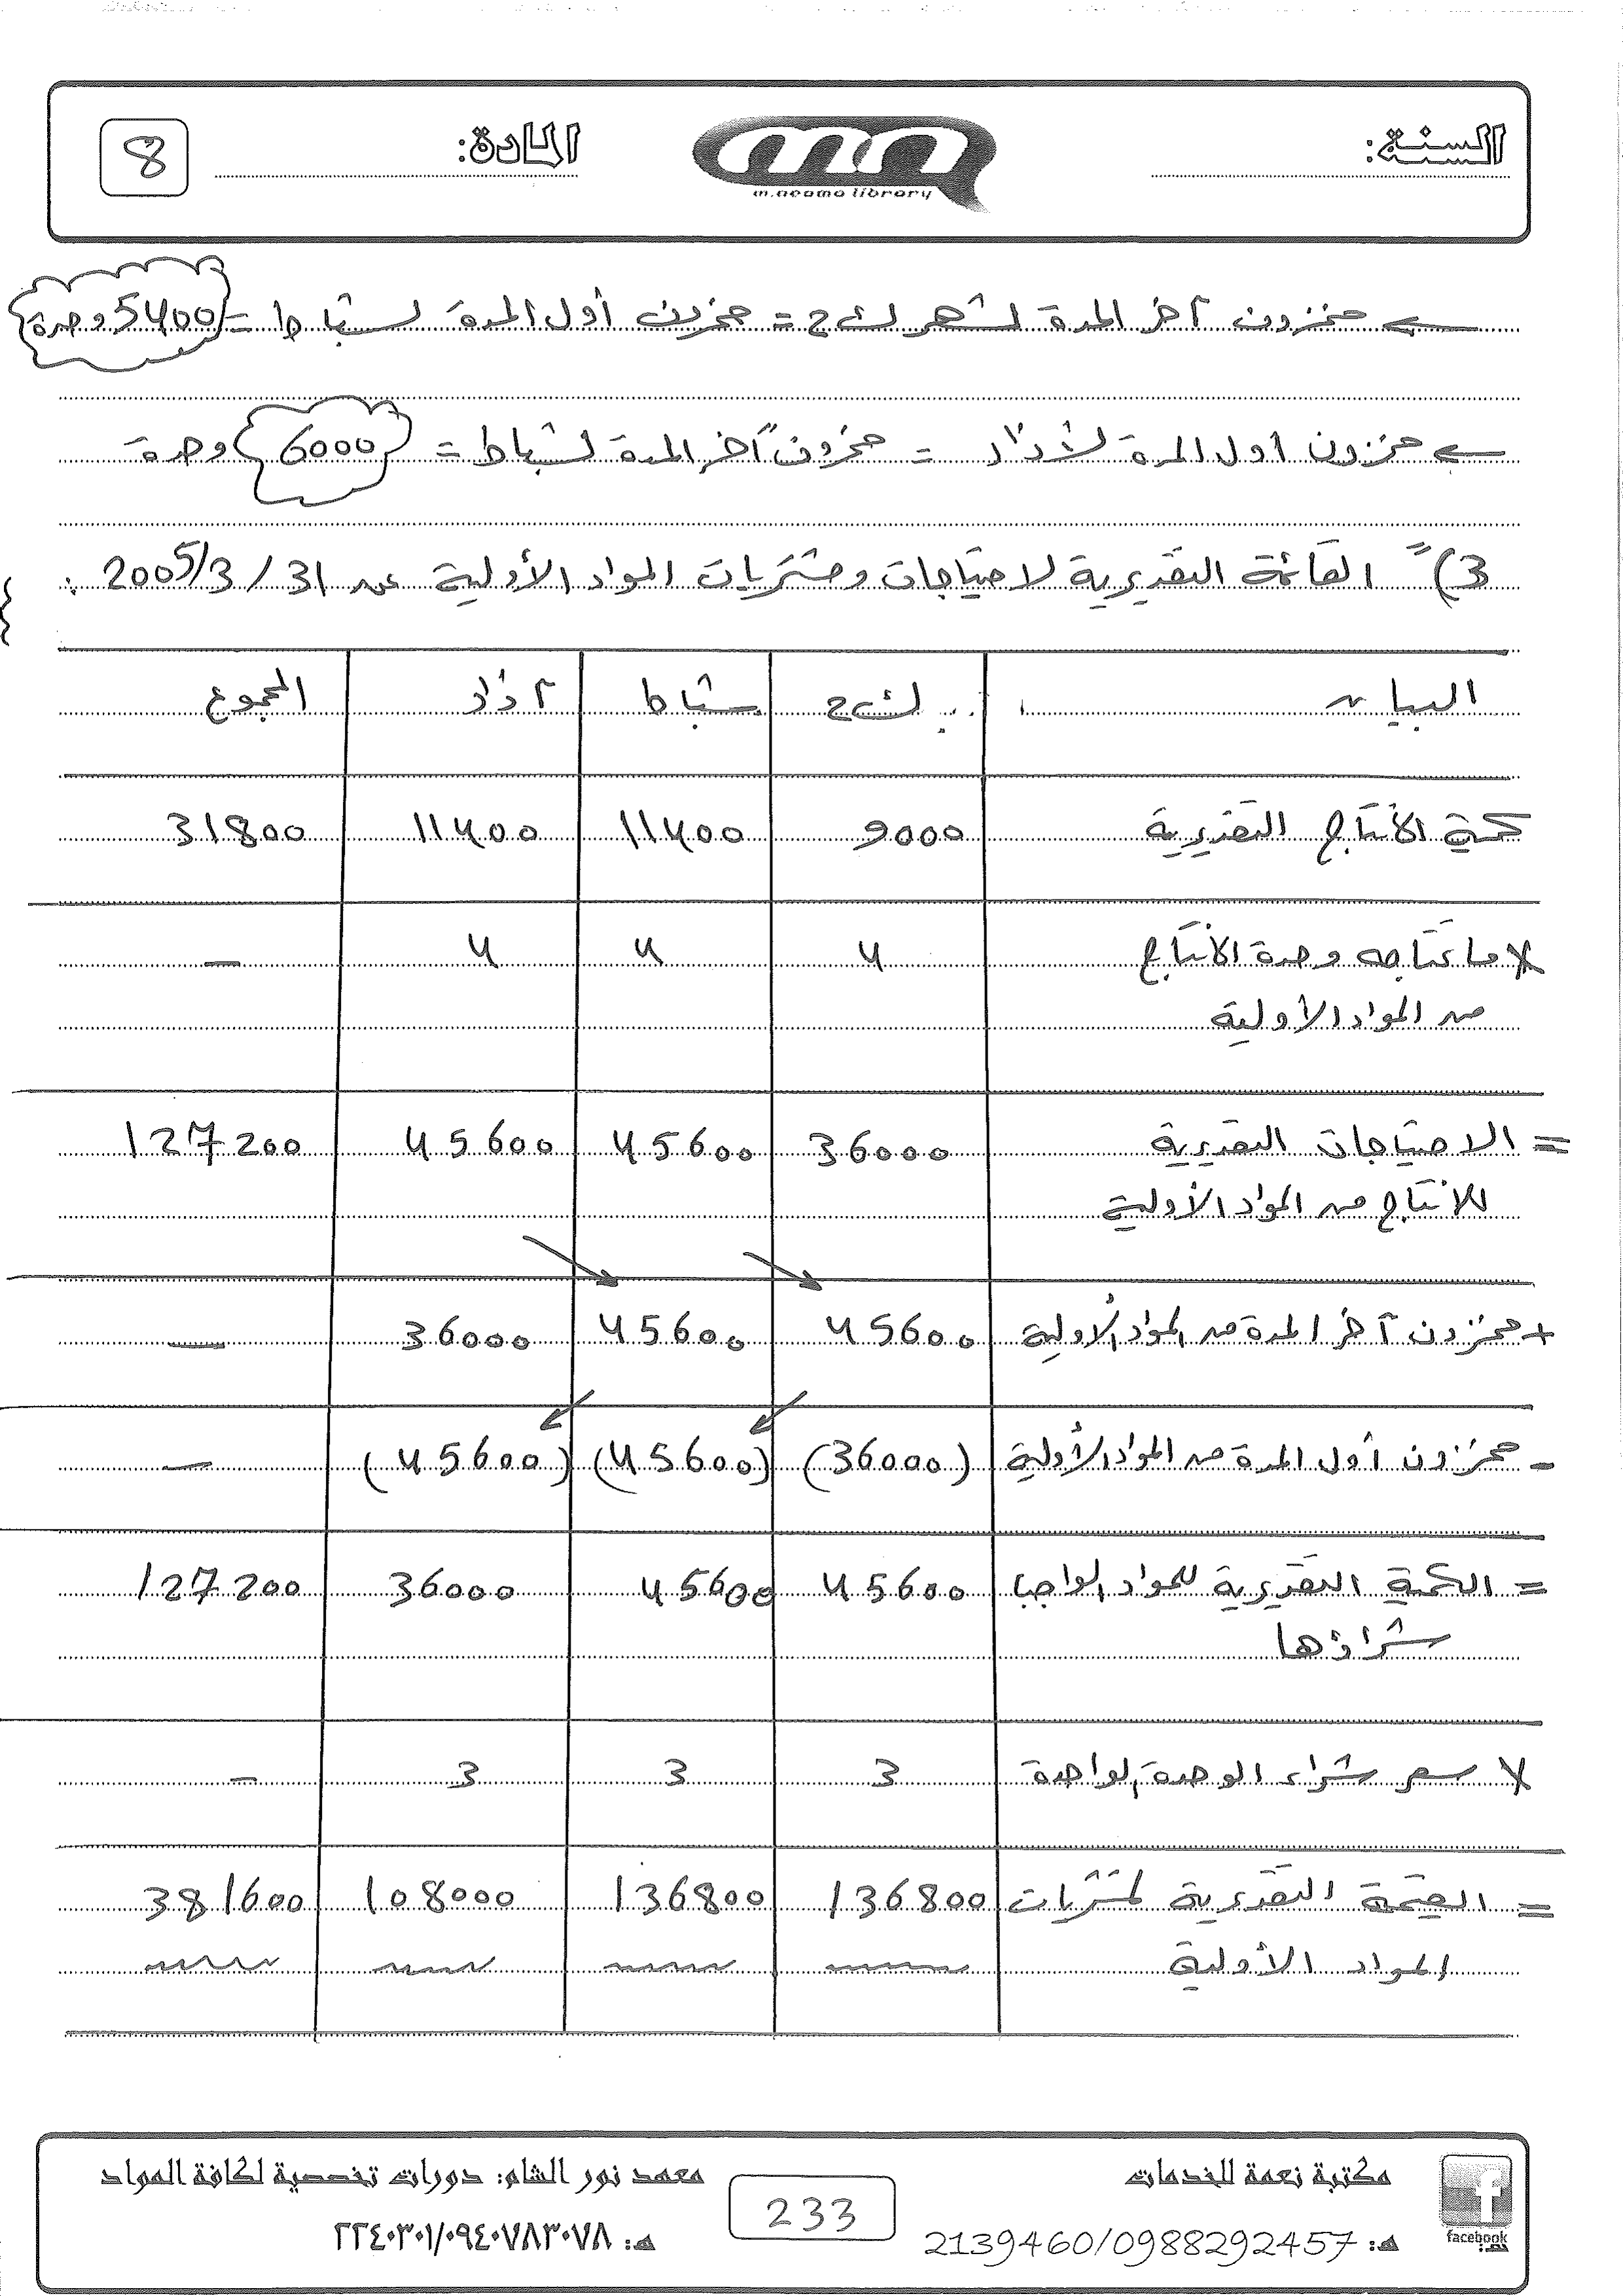 السنة:
m.neama library
المادة:
8
← مخزون آخر المدة لشهر ك2 = مخزون أول المدة لشباط = 5400 وحدة
← مخزون أول المدة لآذار = مخزون آخر المدة لشباط = 6000 وحدة
3) القائمة التقديرية لاحتياجات ومشتريات المواد الأولية عن 31/3/2005:
البيان ك2 شباط آذار المجموع
كمية الإنتاج التقديرية 9000 11400 11400 31800
× ما تحتاجه وحدة الإنتاج 4 4 4 —
من المواد الأولية
= الاحتياجات التقديرية 36000 45600 45600 127200
للإنتاج من المواد الأولية
+ مخزون آخر المدة من المواد الأولية 45600 45600 36000 —
- مخزون أول المدة من المواد الأولية (36000) (45600) (45600) —
= الكمية التقديرية للمواد الواجب 45600 45600 36000 127200
شراؤها
× سعر شراء الوحدة الواحدة 3 3 3 -
= القيمة التقديرية لمشتريات 136800 136800 108000 381600
المواد الأولية
facebook
مكتبة نعمة للخدمات
هـ: 2139460/0988292457
233
معهد نور الشام: دورات تخصصية لكافة المواد
هـ: ٢٢٤٠٣٠١/٠٩٤٠٧٨٣٠٧٨